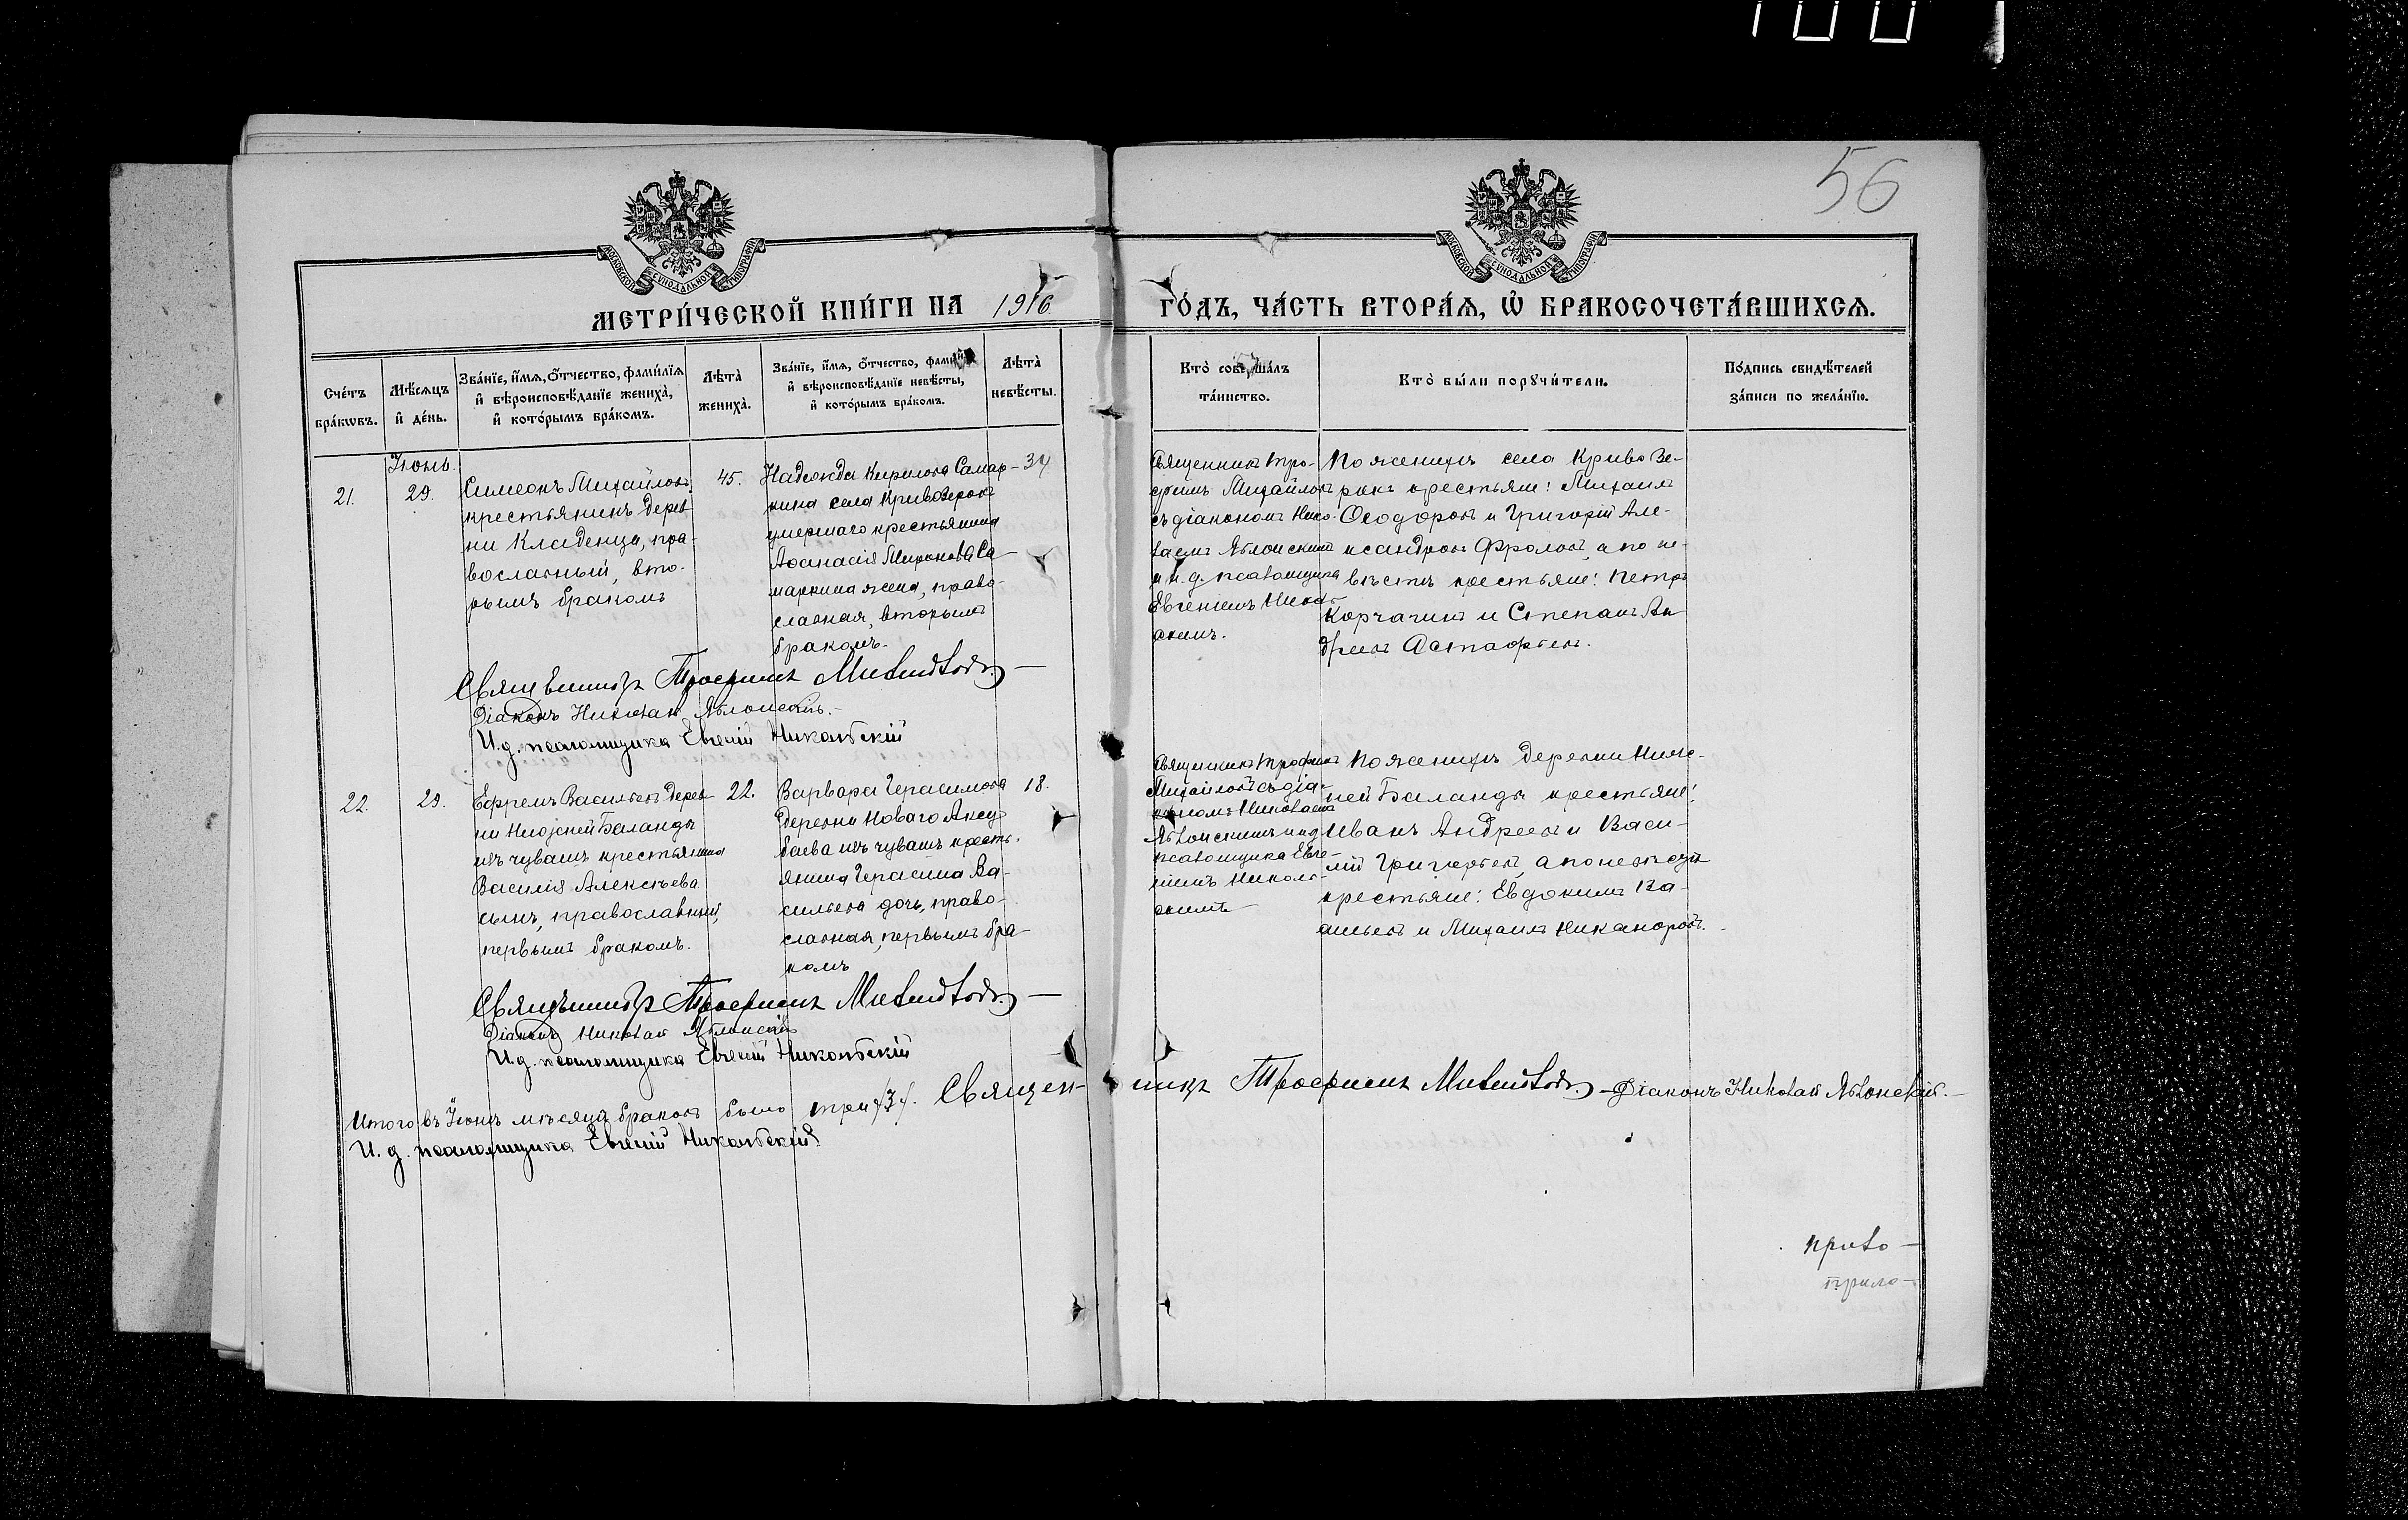 56
МОСКОВСКОЙ СѴНОДАЛЬНОЙ ТИПОГРАФІИ
МОСКОВСКОЙ СѴНОДАЛЬНОЙ ТИПОГРАФІИ
МЕТРИ́ЧЕСКОЙ КНИ́ГИ НА 1916
ГО́ДЪ, ЧА́СТЬ ВТОРА́Я, Ѡ БРАКОСОЧЕТА́ВШИХСЯ.
Сче́тъ
бра́кѡвъ.
Мѣ́сяцъ
и де́нь.
Зва́нїе, и́мя, о́тчество, фами́лїя
и вѣроисповѣ́данїе жениха̀,
и кото́рымъ бра́комъ.
Лѣта̀
жениха̀.
Зва́нїе, и́мя, о́тчество, фами́лїя
и вѣроисповѣ́данїе невѣ́сты,
и кото́рымъ бра́комъ.
Лѣта̀
невѣ́сты.
Кто̀ соверша́лъ
та́инство.
Кто̀ бы́ли порꙋчи́тели.
По́дпись свидѣ́телей
за́писи по жела́нїю.
Іюнь.
21.
29.
Симеонъ Михайловъ,
крестьянинъ дерев-
ни Кладенца, пра-
вославный, вто-
рымъ бракомъ
45.
Надежда Кирилова Самар-
кина села Кривозерокъ
умершаго крестьянина
Аѳанасія Миронова Са-
маркина жена, право-
славная, вторымъ
бракомъ.
34
Священникъ Тро-
фимъ Михайловъ
съ діакономъ Нико-
лаемъ Яблонскимъ
и и. д. псаломщика
Евгеніемъ Николь-
скимъ.
По женихѣ села Кривозе-
рокъ крестьяне: Михаилъ
Ѳеодоровъ и Григорій Але-
ксандровъ Фроловъ, а по не-
вѣстѣ крестьяне: Петръ
Корчагинъ и Степанъ Ан-
дреевъ Астафьевъ.
Священникъ Трофимъ Михайловъ.
Діаконъ Николай Яблонскій.
И. д. псаломщика Евгеній Никольскій
22.
29.
Ефремъ Васильевъ дерев-
ни Нижней Баланды
изъ чувашъ крестьянина
Василія Алексѣева
сынъ, православный,
первымъ бракомъ.
22.
Варвара Герасимова
деревни Новаго Аксу-
баева изъ чувашъ кресть-
янина Герасима Ва-
сильева дочь, право-
славная, первымъ бра-
комъ
18.
Священникъ Трофимъ
Михайловъ съ діа-
кономъ Николаемъ
Яблонскимъ и и д
псаломщика Евге-
ніемъ Николь-
скимъ
По женихѣ деревни Ниж-
ней Баланды крестьяне:
Иванъ Андреевъ и Васи-
лій Григорьевъ, а по невѣстѣ
крестьяне: Евдокимъ Ва-
сильевъ и Михаилъ Никаноровъ.
Священникъ Трофимъ Михайловъ.
Діаконъ Николай Яблонскій
И. д. псаломщика Евгеній Никольскій
Итого въ Іюнѣ мѣсяцѣ браковъ было три /3/. Священникъ Трофимъ Михайловъ. Діаконъ Николай Яблонскій.
И. д. псаломщика Евгеній Никольскій
прило-
прило-